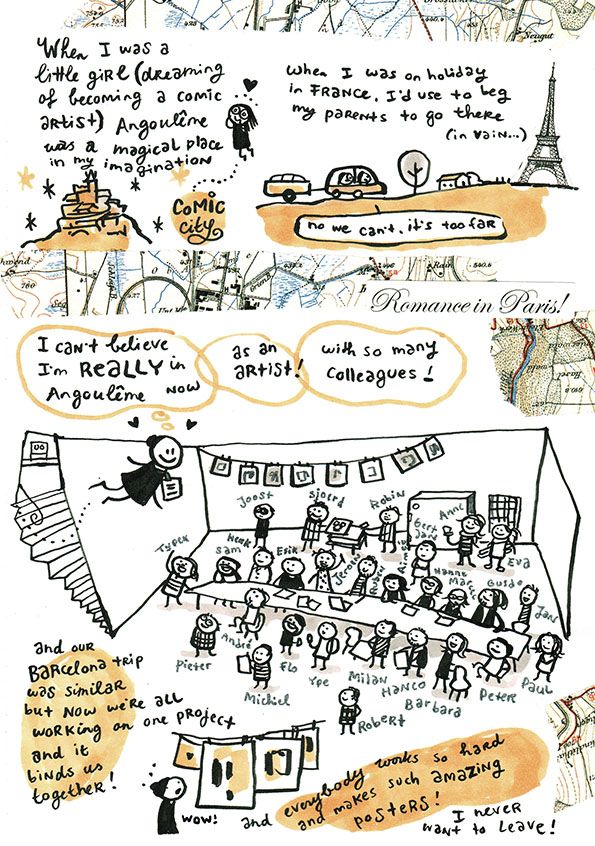 When I was a
little girl (dreaming
of becoming a comic
artist) Angoulême
was a magical place
in my imagination
Comic
City
When I was on holiday
in FRANCE, I'd use to beg
my parents to go there
(in vain...)
no we can't, it's too far
Romance in Paris!
I can't believe
I'm REALLY in
Angoulême now
as an
artist!
with so many
colleagues!
Joost
Sjoerd
Robin
Anne
Gert
Jan
Eva
Typex
Sam
Henk
Erik
Jeroen
Ruben
Hanne
Marcel
Guido
Jan
Pieter
André
Michiel
Flo
Ype
Milan
Hanco
Barbara
Peter
Paul
Robert
and our
Barcelona trip
was similar
but now we're all
working on one project
and it
binds us
together!
WOW!
and everybody works so hard
and makes such amazing
posters!
I never
want to leave!